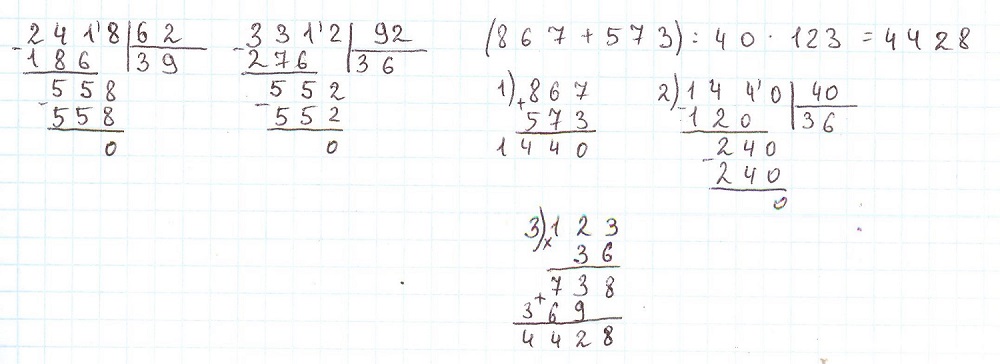 2418 | 62
- 186 | 39
558
- 558
0
331'2 | 92
- 276 | 36
552
- 552
0
(867 + 573) : 40 · 123 = 4428
1) 867
+ 573
1440
2) 144'0 | 40
- 120 | 36
240
- 240
0
3) 123
× 36
738
+ 369
4428